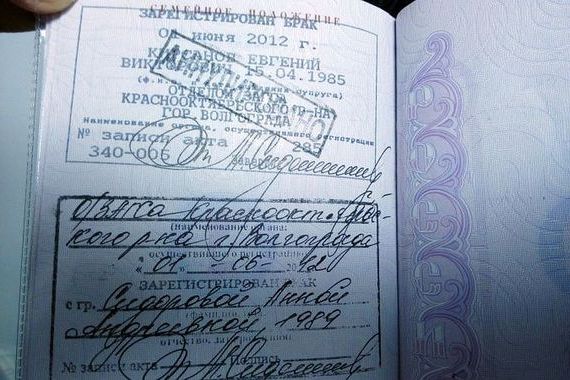 СЕМЕЙНОЕ ПОЛОЖЕНИЕ
ЗАРЕГИСТРИРОВАН БРАК
ИЮНЯ 2012 г.
ЕВГЕНИЙ
15.04.1985
супруга)
КРАСНООКТЯБРЬСКОГО Р-НА
ГОР. ВОЛГОГРАДА
наименование органа, осуществившего регистрацию
№ записи акта 285
340-006
ОЗАГСа Краснооктябрь-
ского р-на г. Волгограда
(наименование органа,
осуществившего регистрацию)
"01" - 06 - 2012
ЗАРЕГИСТРИРОВАН БРАК
с гр. Сидоровой Анной
Андреевной, 1989
№ записи акта
Подпись